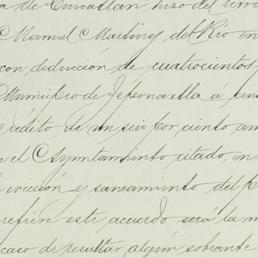 de Cuicatlan hizo del terre
Manuel Martinez del Rio en
con deducción de cuatrocientos
Municipio de a
rédito de un seis por ciento an
el Ayuntamiento citado, en
evicción y saneamiento del
refiere este acuerdo será la m
caso de resultar algún sobrante